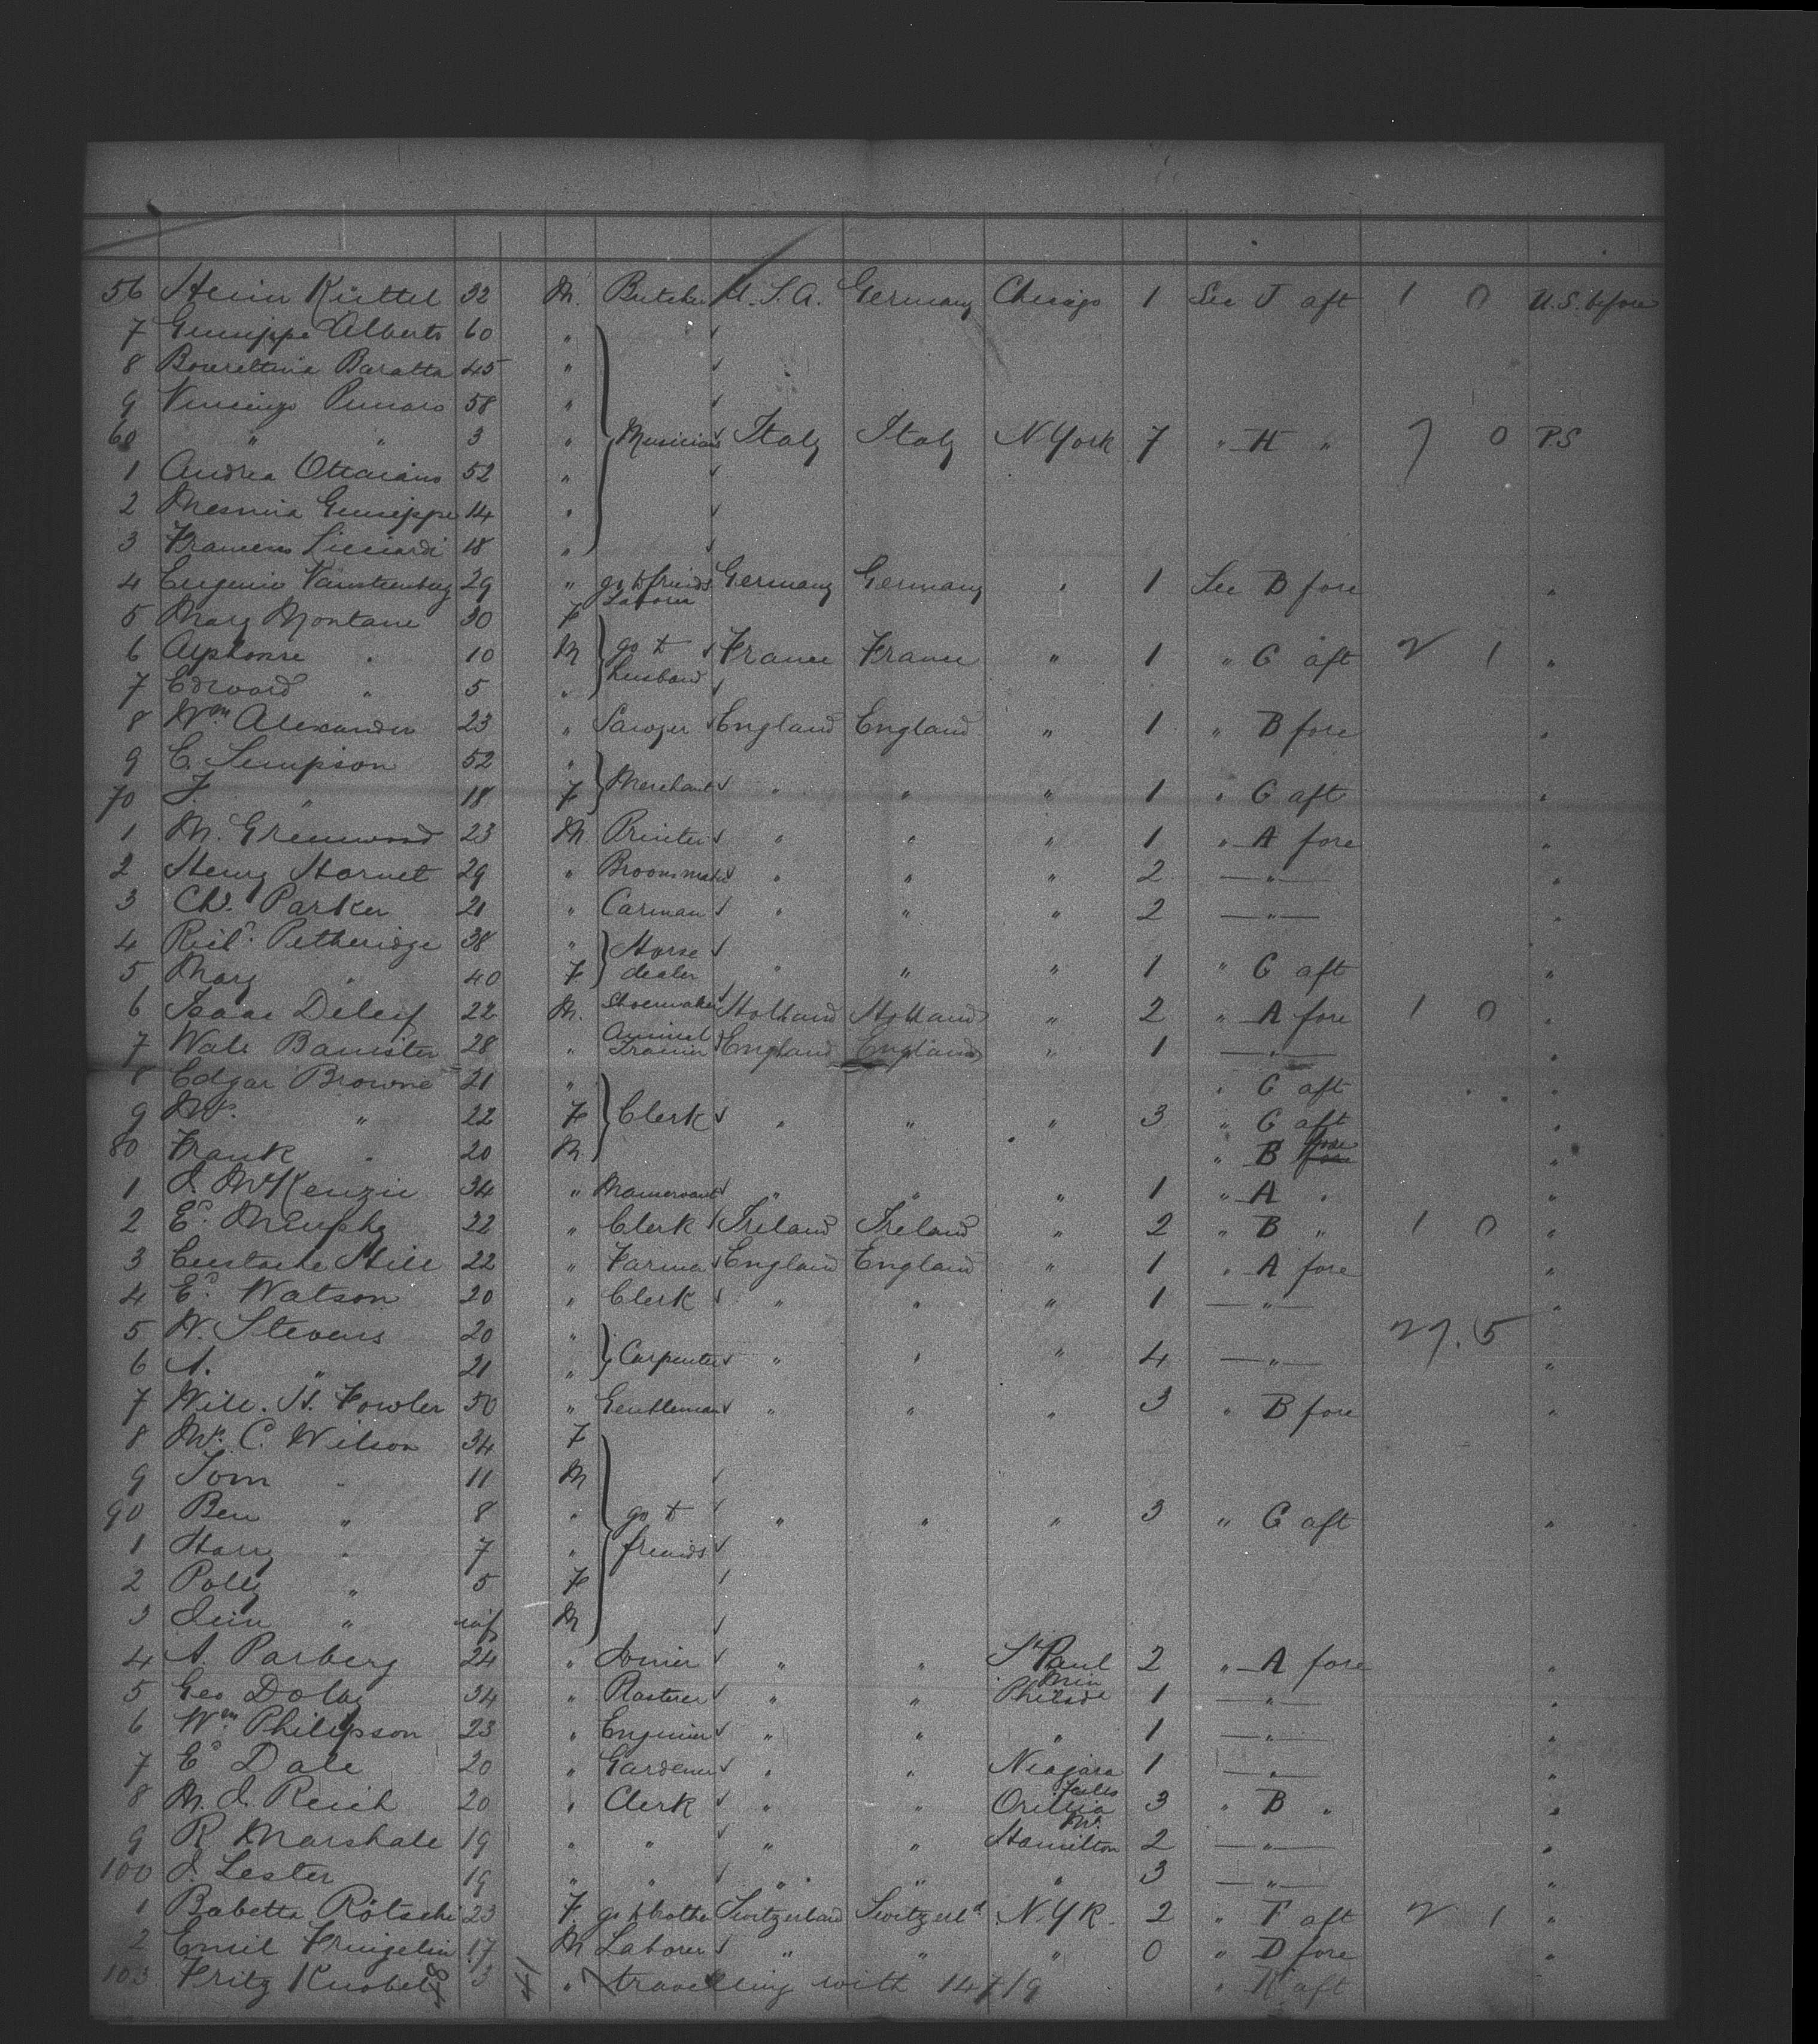 56 Küttel 32 M. Butcher U.S.A. Germany Chicago 1 Sec J aft 1 0 U.S. before
7 Giuseppe Alberto 60 "
8 Baratta 45 "
9 58 "
60 " " 3 " Musicians Italy Italy N York 7 " H " 7 0 P.S
1 Andrea Ottaiano 52 "
2 Giuseppe 14 "
3 Licciardi 18 "
4 Eugenio 29 " go to friends Laborer Germany Germany " 1 Sec B fore "
5 Mary Montane 30 F
6 Alphonse " 10 M go to husband France France " 1 " C aft 2 1 "
7 Edward " 5 "
8 Wm Alexander 23 " Sawyer England England " 1 " B fore "
9 C. Simpson 52 "
70 F. " 18 F Merchant " " " 1 " C aft "
1 M. Greenwood 23 M Printer " " " 1 " A fore "
2 Henry Hornet 29 " " " " 2 — " — "
3 Chs. Parker 21 " Carman " " " 2 — " — "
4 Richd. Petheridge 38 " Horse
5 Mary " 40 F dealer " " " 1 " C aft "
6 Isaac 22 M. Shoemaker Holland Holland " 2 " A fore 1 0 "
7 Walt Banister 28 " Animal Trainer England England " 1 — " — "
8 Edgar Browne 21 " " C aft "
9 Mrs. " 22 F Clerk " " " 3 " C aft "
80 Frank " 20 M " B fore "
1 J. McKenzie 34 " Manservant " " " 1 " A " "
2 Ed. Murphy 22 " Clerk Ireland Ireland " 2 " B " 1 0 "
3 Eustache Hill 22 " Farmer England England " 1 " A fore "
4 Ed. Watson 20 " Clerk " " " 1 — " — "
5 W. Stevens 20 " 27.5
6 A. " 21 " Carpenters " " " 4 — " — "
7 Will. H. Fowler 50 " Gentleman " " " 3 " B fore "
8 Mrs. C. Wilson 34 F
9 Tom " 11 M
90 Ben " 8 " go to " " " 3 " C aft "
1 Harry " 7 " friends
2 Polly " 5 F
3 " inf M
4 A. Parberg 24 " Joiner " " St Paul Min 2 " A fore "
5 Geo Dolby 34 " Plasterer " " Philade 1 — " — "
6 Wm Philipson 23 " Engineer " " " 1 — " — "
7 Ed Dale 20 " Gardener " " Niagara Falls 1 — " — "
8 M. J. Reich 20 " Clerk " " Orillia 3 " B " "
9 R. Marshall 19 " " " " Hamilton 2 — " — "
100 J. Lester 19 " " " " " 3 — " — "
1 Babetta Rötschi 23 F. go to Switzerland Switzerld N.YK. 2 " F aft 2 1 "
2 Emil Fringelin 17 M Laborer " " " 0 " D fore "
103 Fritz Knobel 3 " travelling with 147/9 " K aft